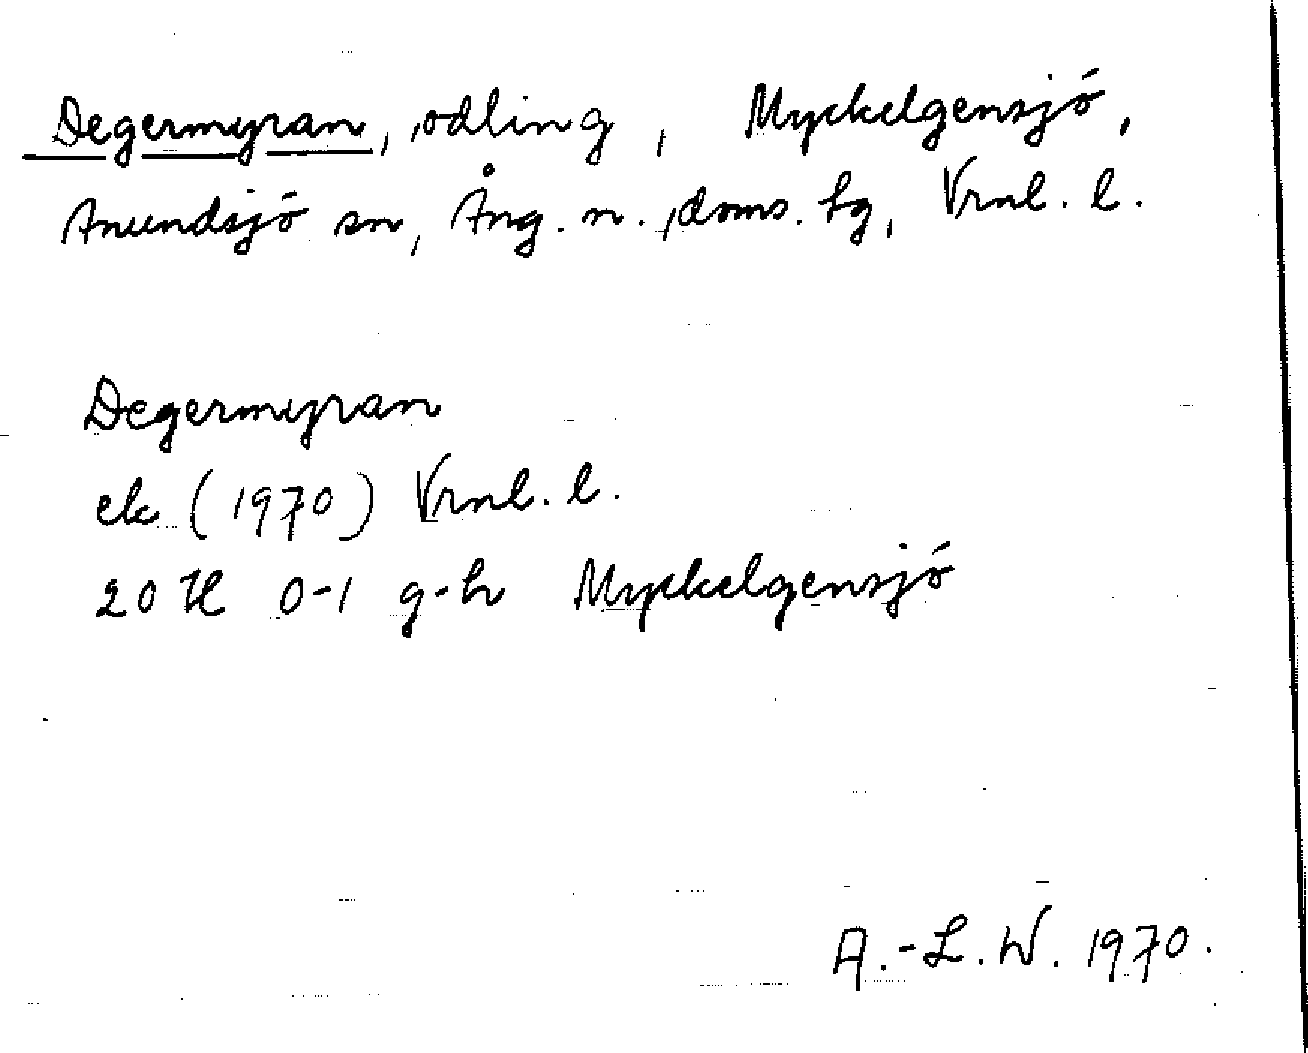 Degermyran, odling, Myckelgensjö,
Anundsjö sn, Ång. n. doms. tg, Vrnl. l.
Degermyran
ek (1970) Vrnl. l.
20 H 0-1 g-h Myckelgensjö
A.-L. W. 1970.